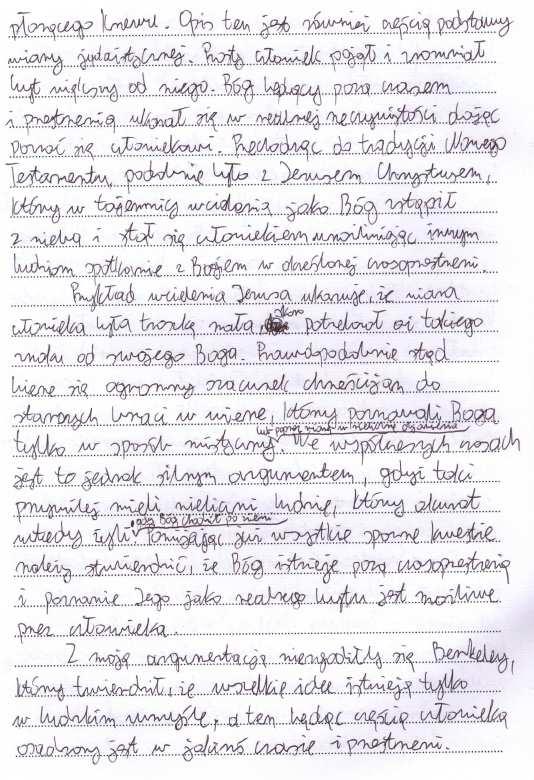 płonącego krzewu. Opis ten jest również częścią podstawy
wiary judaistycznej. Prosty człowiek pojął i zrozumiał
byt większy od niego. Bóg będący poza czasem
i przestrzenią ukazał się w realnej rzeczywistości dając
poznać się człowiekowi. Przechodząc do tradycji Nowego
Testamentu, podobnie było z Jezusem Chrystusem,
który w tajemnicy wcielenia jako Bóg zstąpił
z nieba i stał się człowiekiem umożliwiając innym
ludziom spotkanie z Bogiem w określonej czasoprzestrzeni.
Przykład wcielenia Jezusa ukazuje, że wiara
człowieka była troszkę mała, skoro potrzebował aż takiego
znaku od swojego Boga. Prawdopodobnie stąd
bierze się ogromny szacunek chrześcijan do
starszych braci w wierze, którzy poznawali Boga
tylko w sposób mistyczny We współczesnych czasach
jest to jednak silnym argumentem, gdyż taki
przywilej mieli nieliczni ludzie, którzy akurat
wtedy żyli gdy Bóg chodził po ziemi Pomijając już wszystkie sporne kwestie
należy stwierdzić, że Bóg istnieje poza czasoprzestrzenią
i poznanie Jego jako realnego bytu jest możliwe
przez człowieka.
Z moją argumentacją niezgodziłby się Berkeley,
który twierdził, że wszelkie idee istnieją tylko
w ludzkim umyśle, a ten będąc częścią człowieka
osadzony jest w jakimś czasie i przestrzeni.